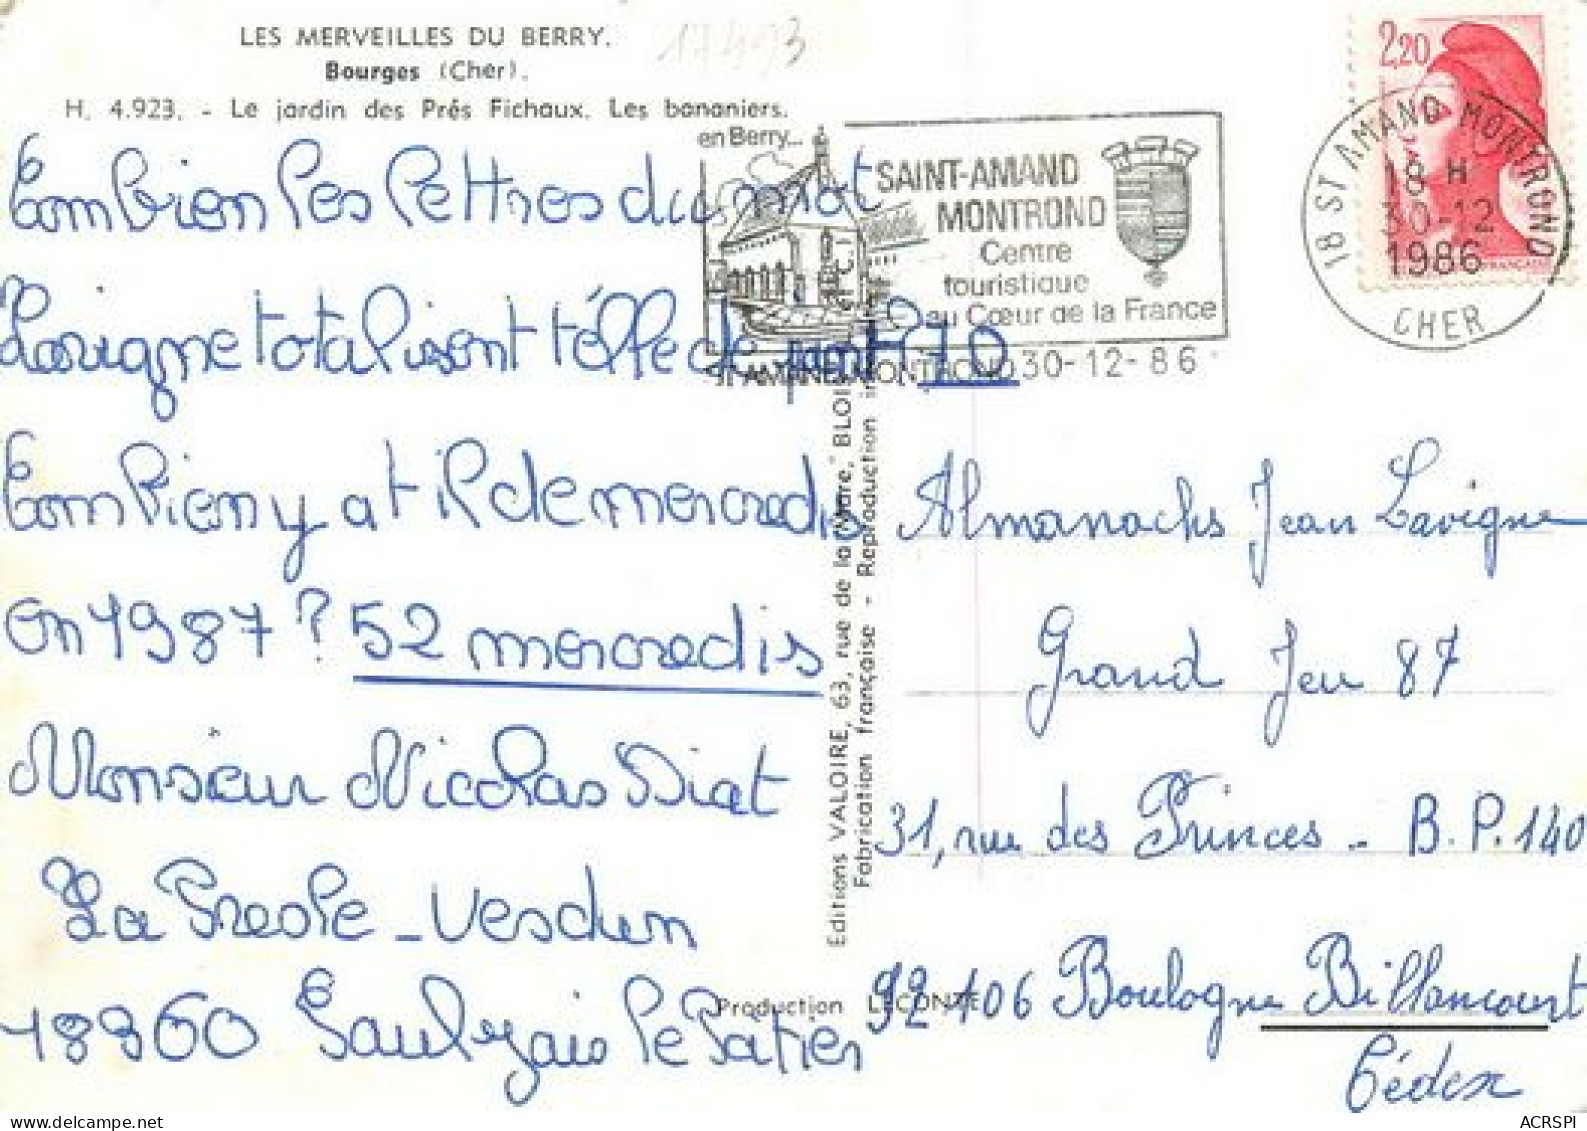 LES MERVEILLES DU BERRY.
Bourges (Cher).
H. 4.923. - Le jardin des Prés Fichaux. Les bananiers.
17493
Combien les lettres du mot
Lavigne totalisent t'elle de point 70
Combien y at il de mercredis
en 1987 ? 52 mercredis
Monsieur Nicolas Diat
La Preole - Vesdun
18360 Saulzais le Potier
en Berry...
SAINT-AMAND
MONTROND
Centre
touristique
au Cœur de la France
ST AMAND MONTROND 30-12-86
2,20
18 ST AMAND MONTROND
18 H
30-12
1986
CHER
Editions VALOIRE, 63, rue de la Mare, BLOIS
Fabrication française - Reproduction
Production LECONTE
Almanachs Jean Lavigne
Grand Jeu 87
31, rue des Princes - B.P. 140
92 106 Boulogne Billancourt
Cédex
ACRSPI